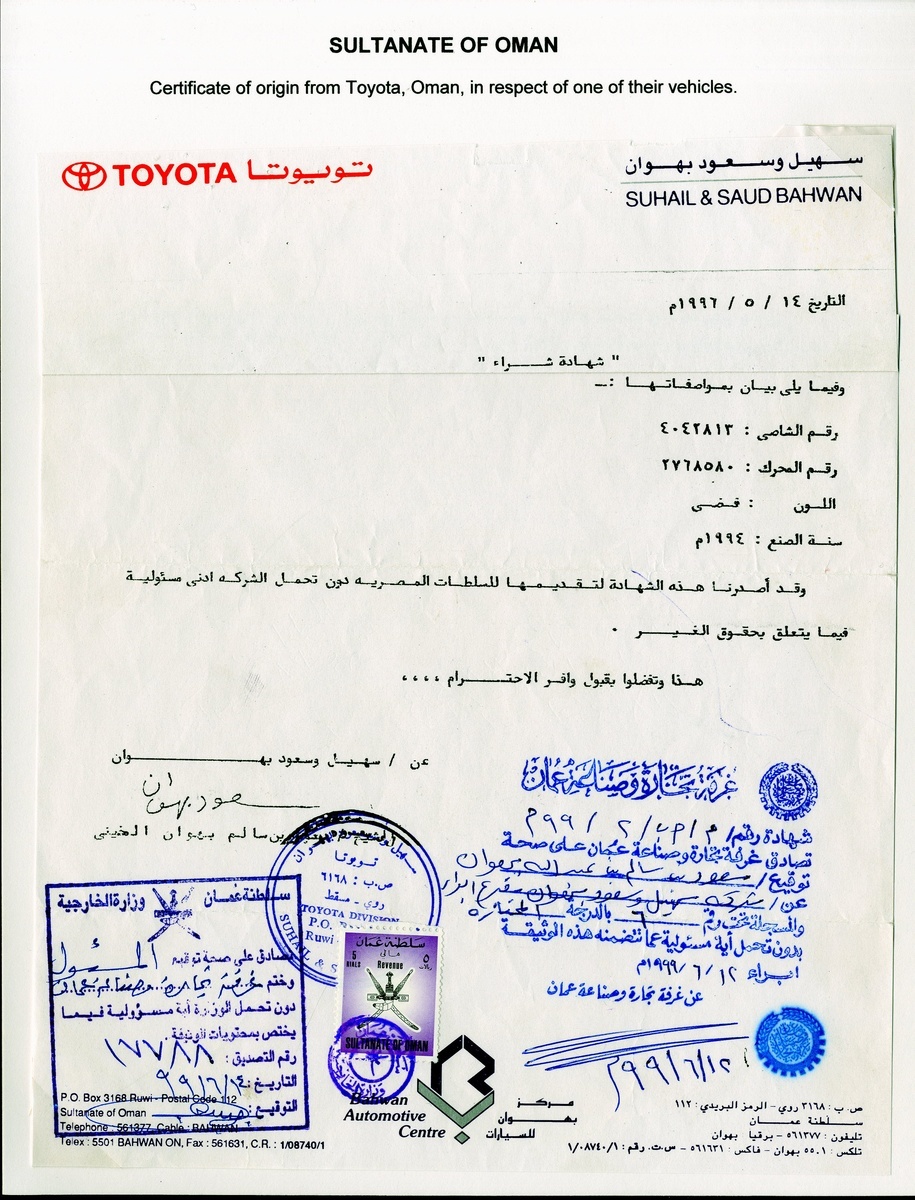 SULTANATE OF OMAN
Certificate of origin from Toyota, Oman, in respect of one of their vehicles.
TOYOTA تويوتا
سهيل وسعود بهوان
SUHAIL & SAUD BAHWAN
التاريخ ١٤ / ٥ / ١٩٩٦م
" شهادة شراء "
وفيما يلى بيان بمواصفاتها :ــ
رقم الشاصى : ٤٠٤٢٨١٣
رقم المحرك : ٢٧٦٨٥٨٠
اللون : فضى
سنة الصنع : ١٩٩٤م
وقد أصدرنا هذه الشهادة لتقديمها للسلطات المصريه دون تحمل الشركه ادنى مسئولية
فيما يتعلق بحقوق الغير .
هذا وتفضلوا بقبول وافر الاحترام ،،،،
عن / سهيل وسعود بهوان
سعود بهوان
سالم بهوان المخينى
غرفة تجارة وصناعة عمان
شهادة رقم /
تصادق غرفة تجارة وصناعة عمان على صحة
توقيع /
عن / شركة سهيل وسعود بهوان
والمسجلة تحت رقم ٦ بالدرجة الممتازة
بدون تحمل أية مسئولية عما تتضمنه هذه الوثيقة
١٢ / ٦ / ١٩٩٩م
عن غرفة تجارة وصناعة عمان
٩٩/٦/١٢م
تويوتا
ص.ب : ٦١٦٨
روي - مسقط
TOYOTA DIVISION
P.O.
Ruwi
SUHAIL &
سلطنة عمان
مالي
5 RIALS
Revenue
٥ ريالات
SULTANATE OF OMAN
سلطنة عمان وزارة الخارجية
تصادق على صحة توقيع المسئول
وختم
دون تحمل الوزارة أية مسؤولية فيما
يختص بمحتويات الوثيقة
رقم التصديق : ١٧٧٨٨
التاريخ :
التوقيع :
P.O. Box 3168 Ruwi - Postal Code 112
Sultanate of Oman
Telephone : 561377, Cable : BAHWAN
Telex : 5501 BAHWAN ON, Fax : 561631, C.R. : 1/08740/1
Bahwan
Automotive
Centre
مركز
بهوان
للسيارات
ص.ب : ٣١٦٨ روي - الرمز البريدي : ١١٢
سلطنة عمان
تليفون : ٥٦١٣٧٧ - برقيا بهوان
تلكس : ٥٥٠١ بهوان - فاكس : ٥٦١٦٣١ - س.ت. رقم : ١/٠٨٧٤٠/١